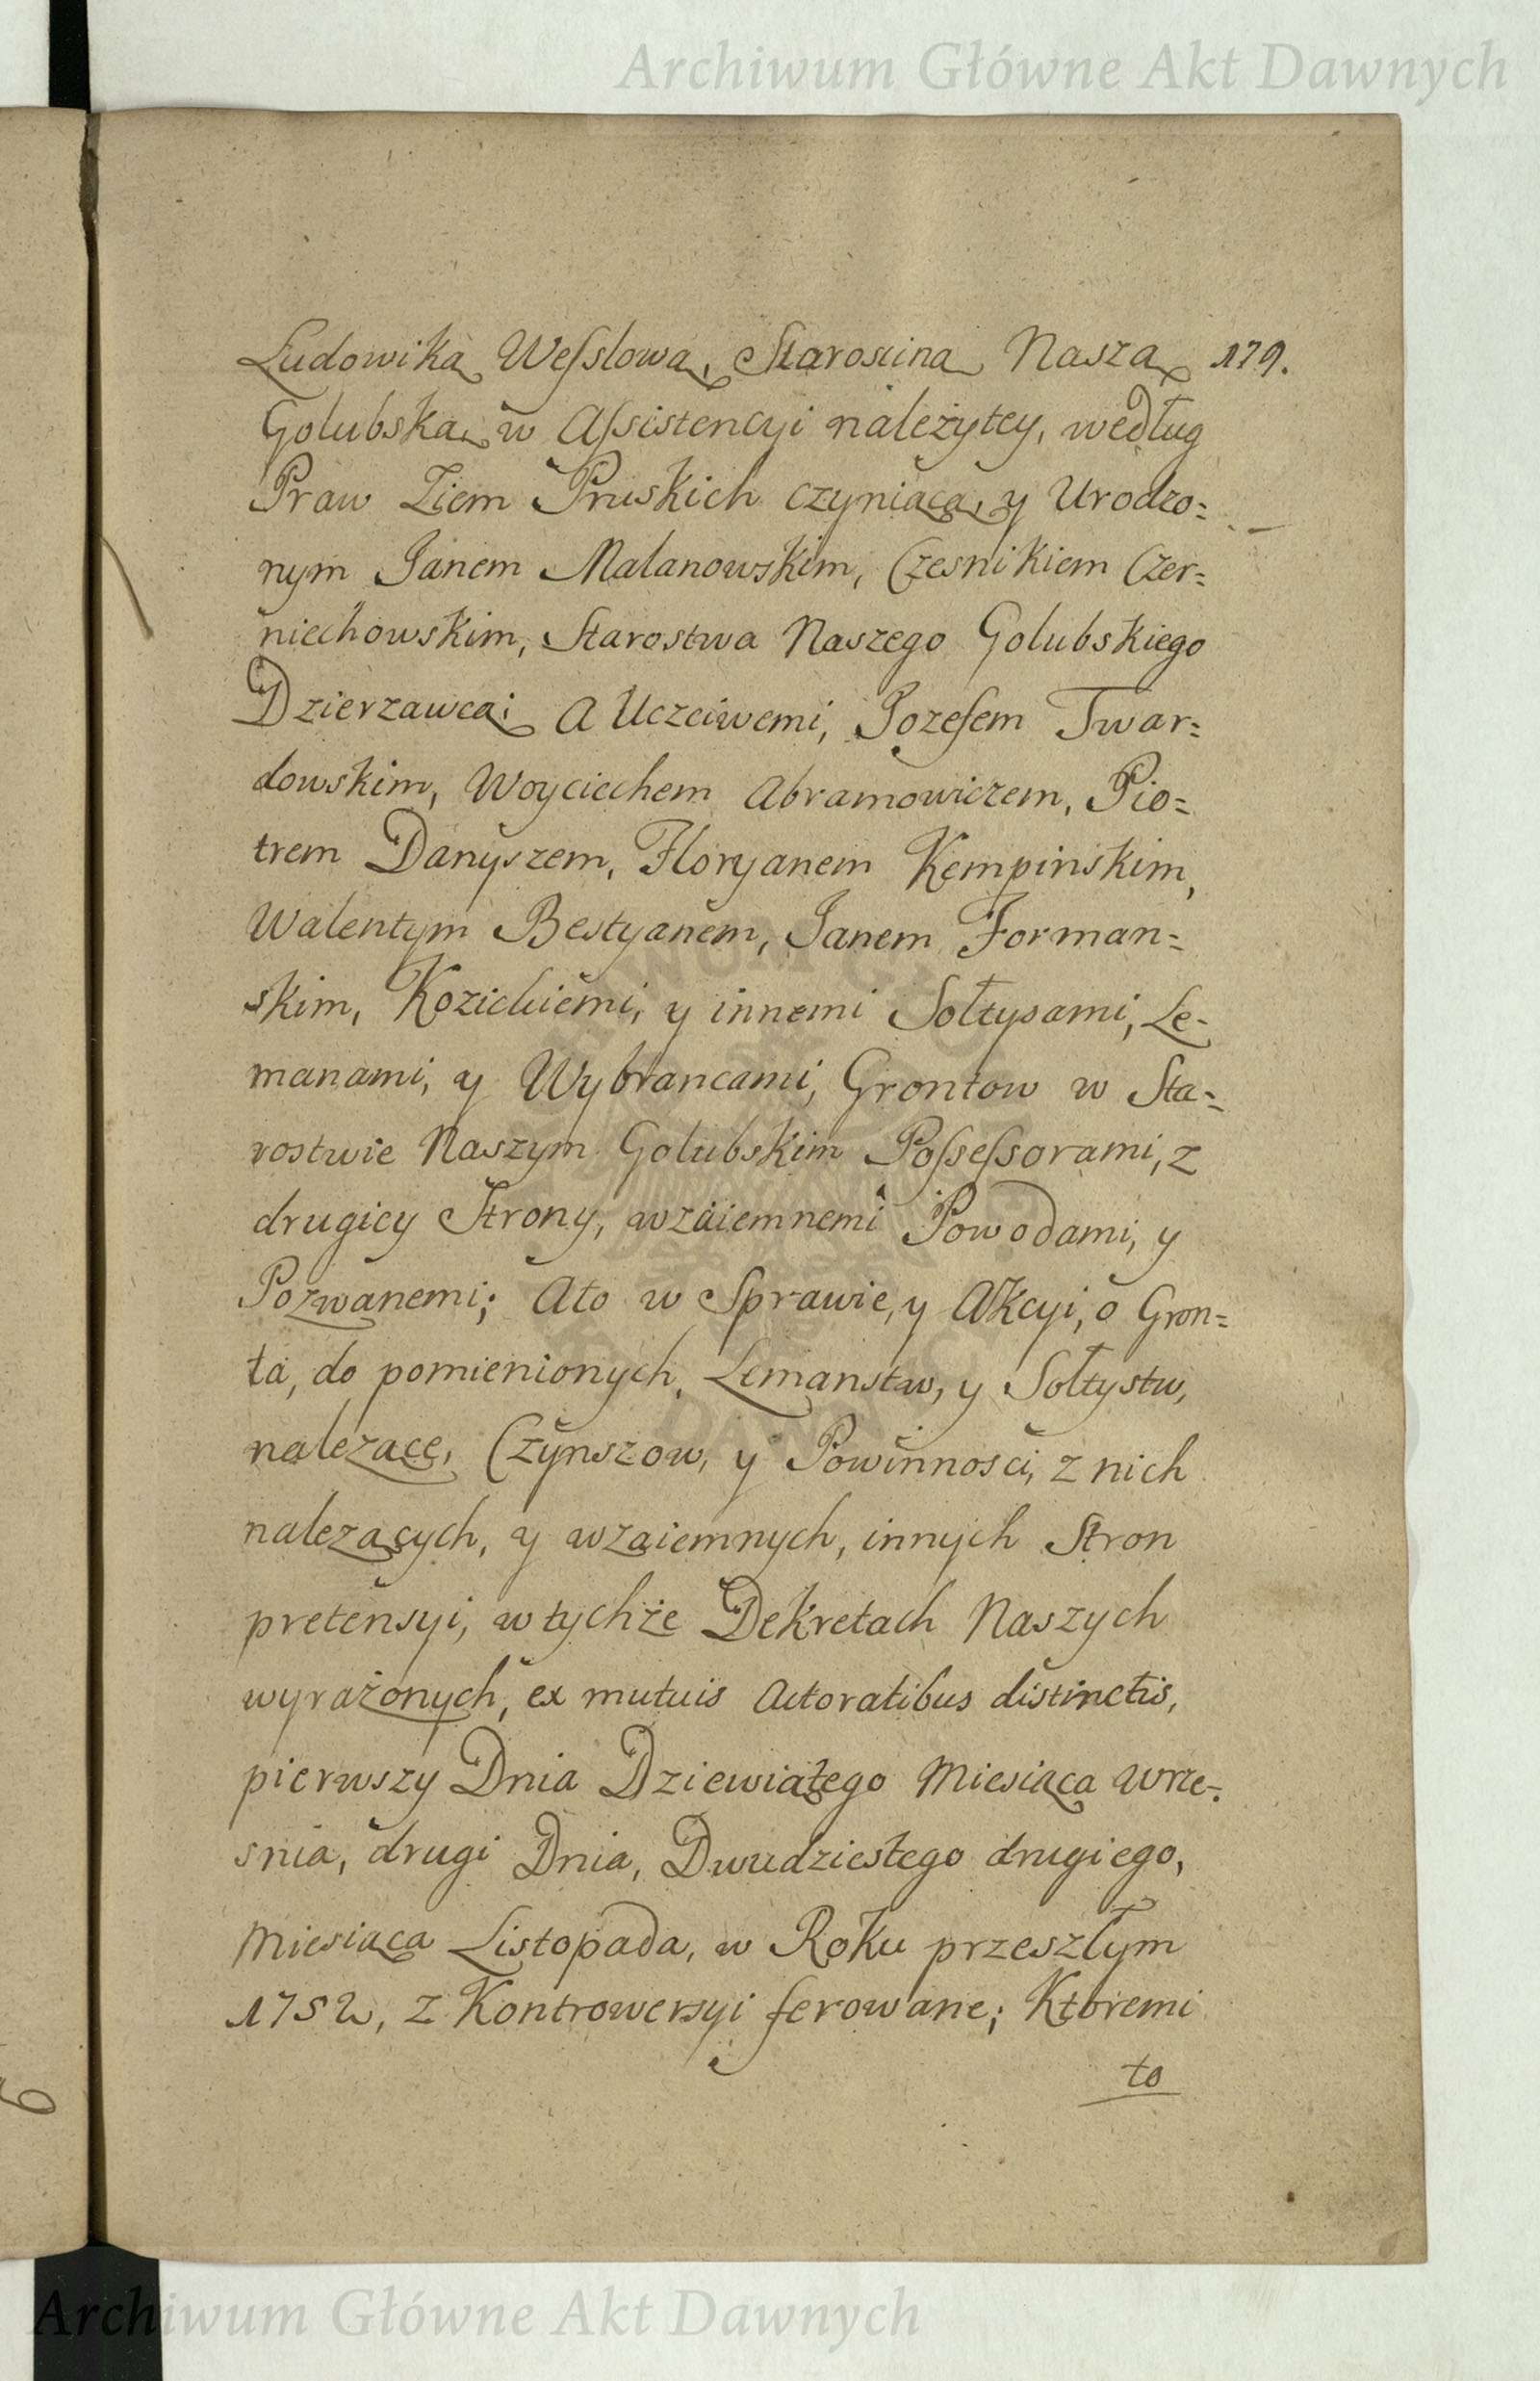 Archiwum Główne Akt Dawnych
Ludowiką Weſslową, Starosciną Naszą 179.
Golubską, w Aſsistencyi należytey, według
Praw Ziem Pruskich czyniącą, y Urodzo=
nym Janem Malanowskim, Czesnikiem Czer=
niechowskim, Starostwa Naszego Golubskiego
Dzierzawcą; A Uczciwemi, Jozefem Twar=
dowskim, Woyciechem Abramowiczem, Pio=
trem Danyszem, Floryanem Kempinskim,
Walentym Bestyanem, Janem Forman=
skim, Kozickiemi, y innemi Sołtysami, Le=
manami, y Wybrancami, Grontow w Sta=
rostwie Naszym Golubskim Poſseſsorami, z
drugiey Strony, wzaiemnemi Powodami, y
Pozwanemi; Ato w Sprawie, y Akcyi, o Gron=
ta, do pomienionych, Lemanstw, y Sołtystw,
nalezące, Czynszow, y Powinnosci, z nich
nalezących, y wzaiemnych, innych Stron
pretensyi, w tychże Dekretach Naszych
wyrażonych, ex mutuis Actoratibus distinctis,
pierwszy Dnia Dziewiątego Miesiąca Wrze=
snia, drugi Dnia, Dwudziestego drugiego,
Miesiąca Listopada, w Roku przeszłym
1752, z Kontrowersyi ferowane; Ktoremi
to
6
Archiwum Główne Akt Dawnych